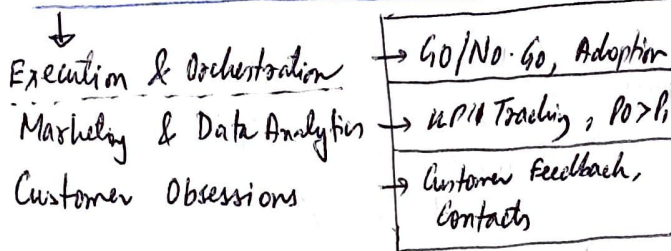 Execution & Orchestration → GO/No-Go, Adoption
Marketing & Data Analytics → Tracking, P0>P1
Customer Obsessions → Customer Feedback,
Contacts